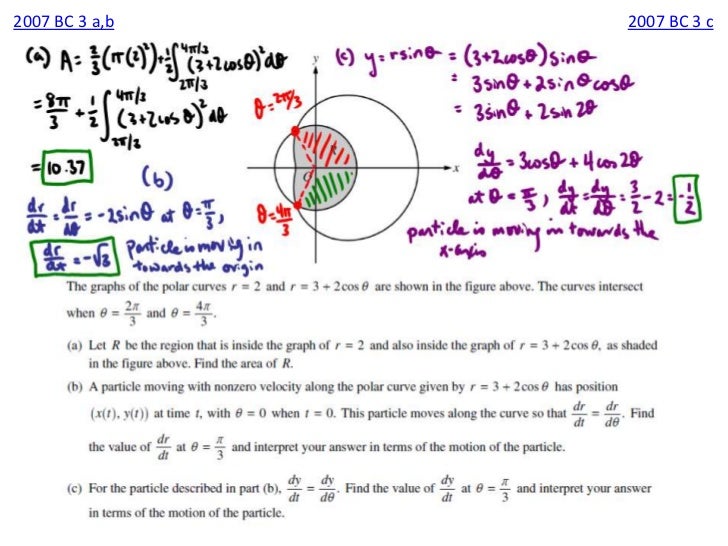 2007 BC 3 a,b
2007 BC 3 c
(a) A = 2/3(π(2)²) + 1/2 ∫_{2π/3}^{4π/3} (3+2cosθ)² dθ
= 8π/3 + 1/2 ∫_{2π/3}^{4π/3} (3+2cosθ)² dθ
= 10.37
(b)
dr/dt = dr/dθ = -2sinθ at θ = π/3,
dr/dt = -√3 Particle is moving in
towards the origin
θ = 2π/3
θ = 4π/3
y
x
O
R
(c) y = rsinθ = (3+2cosθ)sinθ
= 3sinθ + 2sinθcosθ
= 3sinθ + 2sin2θ
dy/dθ = 3cosθ + 4cos2θ
at θ = π/3, dy/dt = dy/dθ = 3/2 - 2 = -1/2
particle is moving in towards the
x-axis
The graphs of the polar curves r = 2 and r = 3 + 2cos θ are shown in the figure above. The curves intersect
when θ = 2π/3 and θ = 4π/3.
(a) Let R be the region that is inside the graph of r = 2 and also inside the graph of r = 3 + 2cos θ, as shaded
in the figure above. Find the area of R.
(b) A particle moving with nonzero velocity along the polar curve given by r = 3 + 2cos θ has position
(x(t), y(t)) at time t, with θ = 0 when t = 0. This particle moves along the curve so that dr/dt = dr/dθ. Find
the value of dr/dt at θ = π/3 and interpret your answer in terms of the motion of the particle.
(c) For the particle described in part (b), dy/dt = dy/dθ. Find the value of dy/dt at θ = π/3 and interpret your answer
in terms of the motion of the particle.